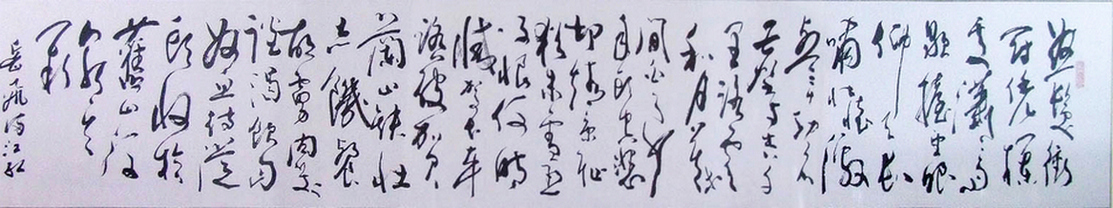 怒髮衝
冠憑欄
處瀟瀟雨
歇抬望眼
仰天長
嘯壯懷激
烈三十功名
塵與土八千
里路雲
和月莫等
閒白了少
年頭空悲
切靖康恥
猶未雪臣
子恨何時
滅駕長車
踏破賀
蘭山缺壯
志饑餐
胡虜肉笑
談渴飲匈
奴血待從
頭收拾
舊山河
朝天
闕
岳飛滿江紅